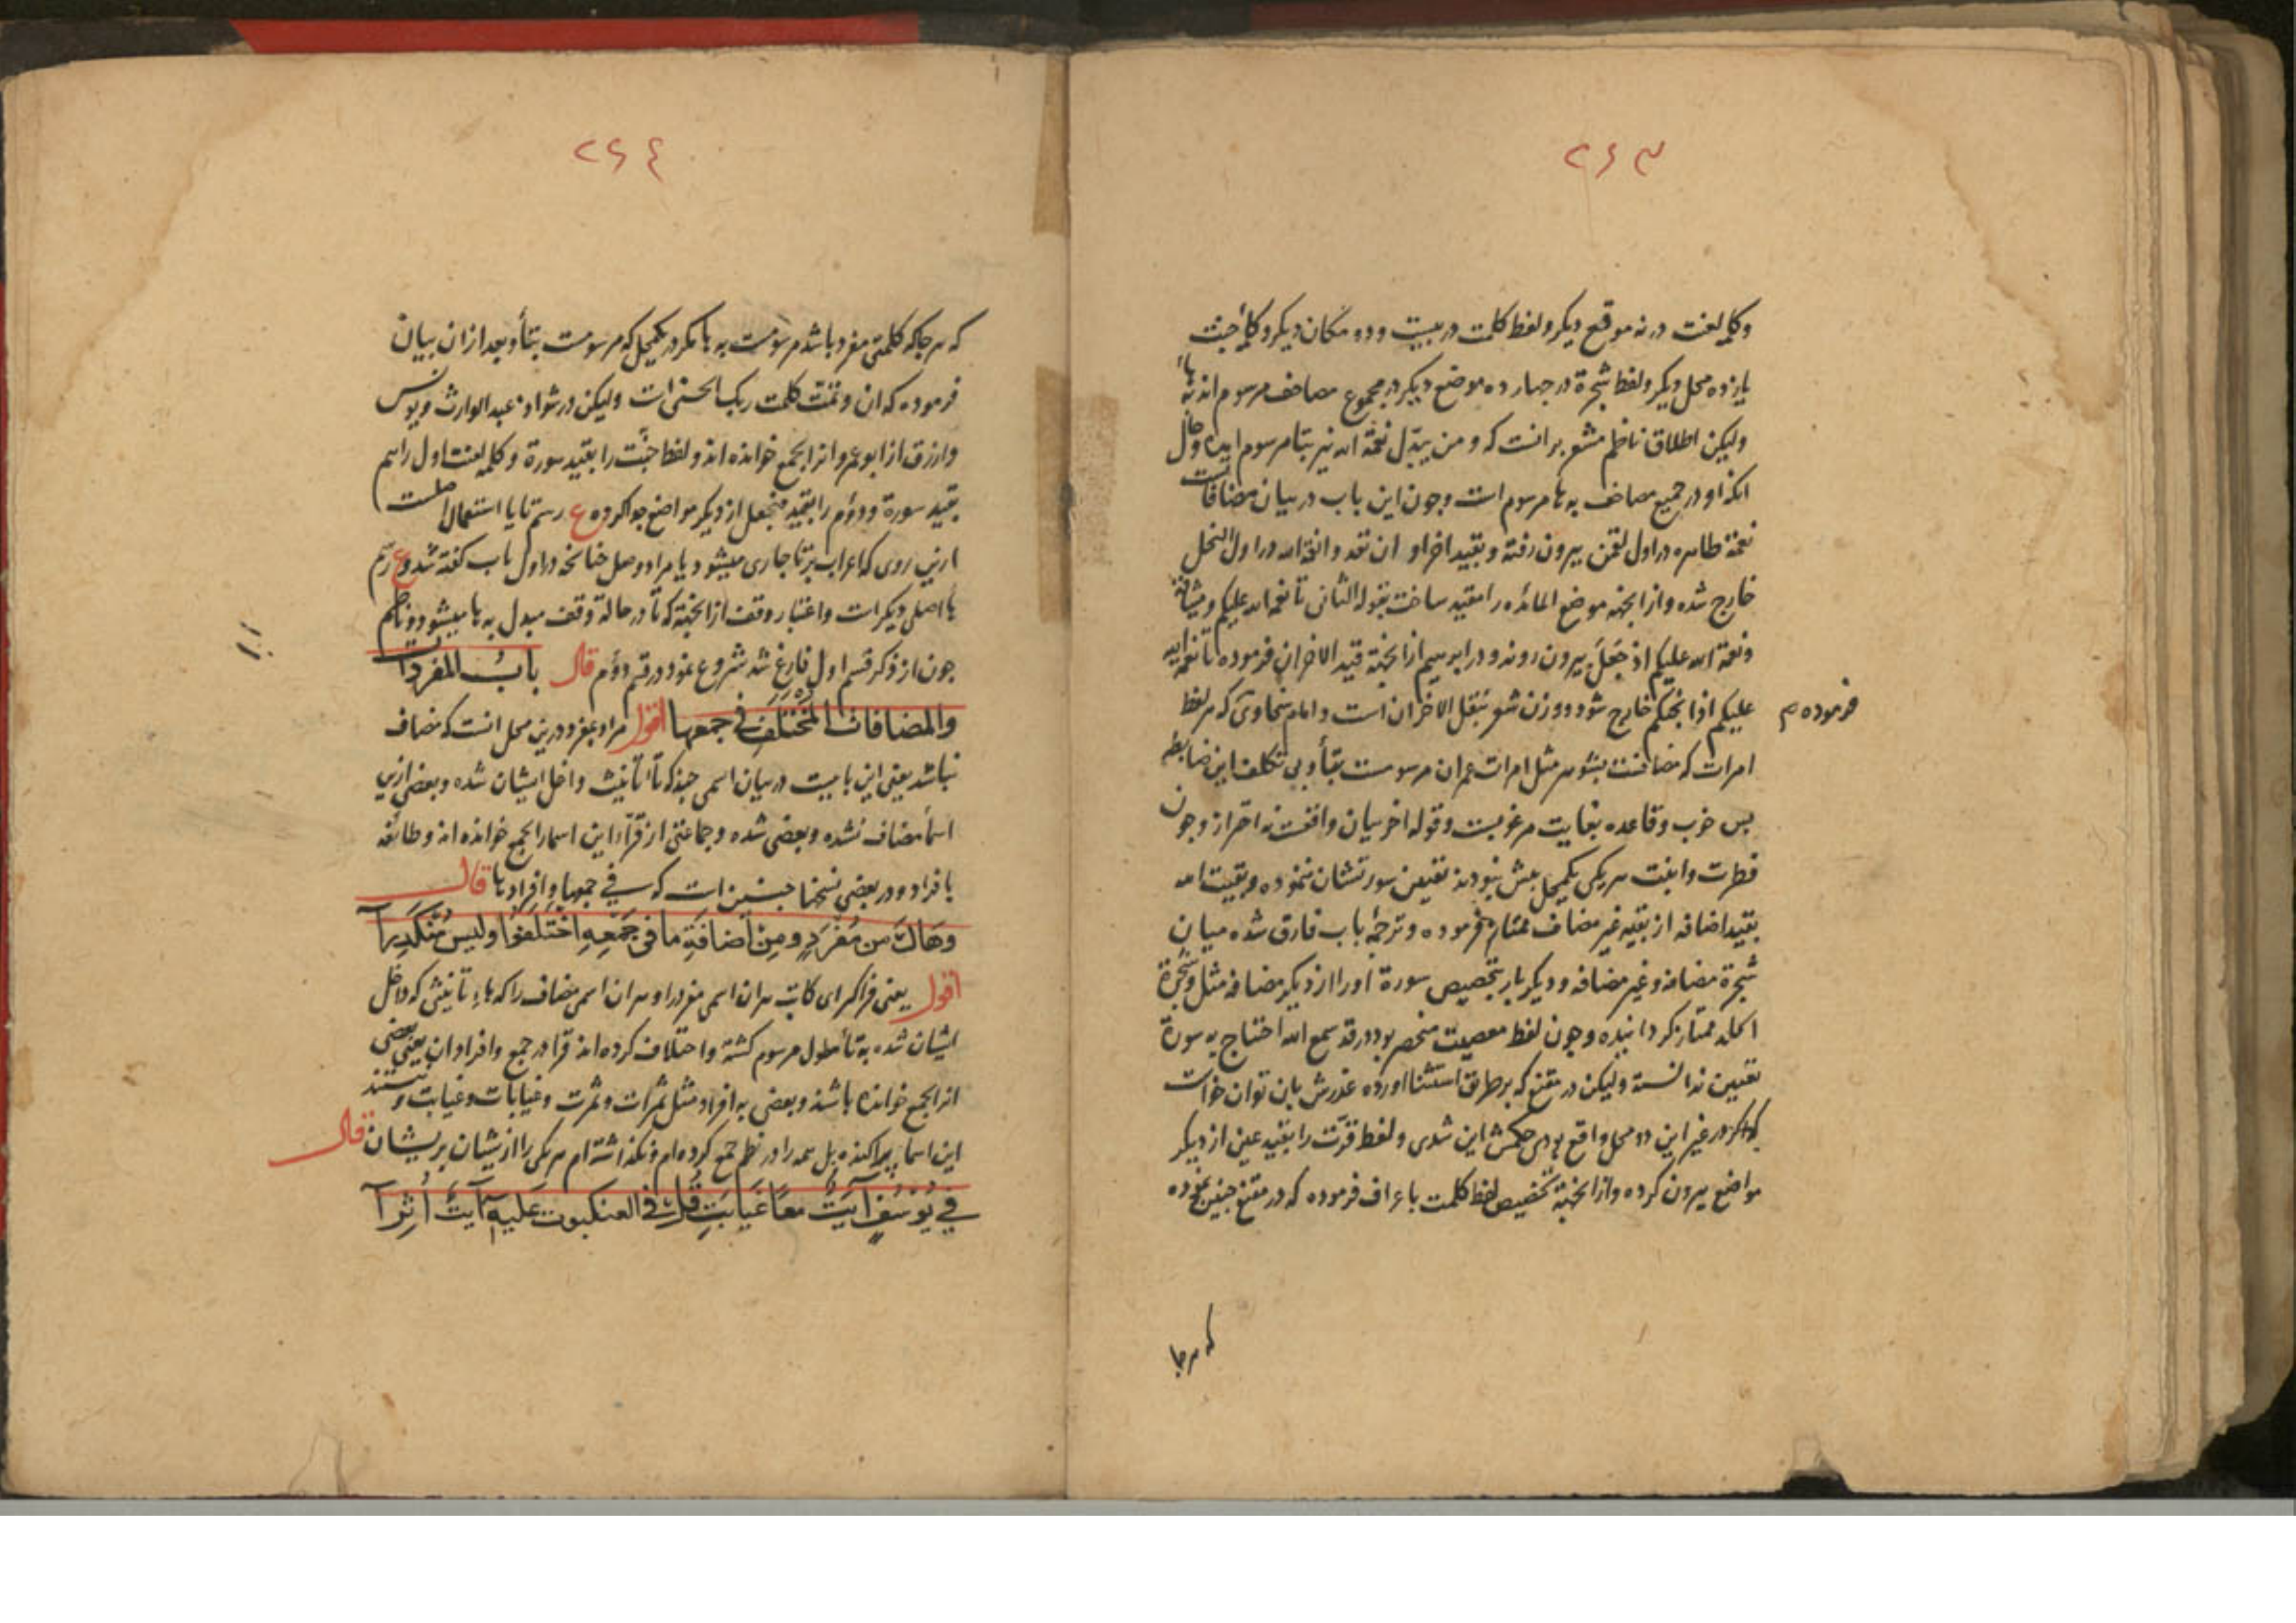 ٢٦٣
وکلمه لعنت در نه موقع دیکر ولفظ کلمت در بیست ودو مکان دیکر وکلمه جنت
یازده محل دیکر ولفظ شجرة در جهار ده موضع دیکر در مجموع مصاحف مرسوم اند
ولیکن اطلاق ناظم مشعر برانست که ومن یبدل نعمة الله نیز بتا مرسوم
انکه او در جمیع مصاحف به ها مرسوم است وجون این باب در بیان مضافات
نعمة ظاهره در اول لقمن بیرون رفته وبقید اخر او ان تعد وانعمة الله در اول النحل
خارج شده وازانجهة موضع المائده را مقید ساخت بقوله الثانی تا نعمة الله علیکم ومیثاقه
ونعمة الله علیکم اذ جعل بیرون روند ودر ابرهیم ازانجهة قید الاخران فرموده تا نعمة الله
علیکم اذ انجیکم خارج شود ووزن شعر بنقل الاخران است وامام سخاوی که هر لفظ
فرموده
امرات که مضافست بشوهر مثل امرات عمران مرسومست بتا وبی تکلف این ضابطه
بس خوب وقاعده بغایت مرغوبست وقوله اخر بیان واقعست نه احتراز وجون
فطرت وابنت هر یکی یکمحل بیش نبودند تعیین سورتشان ننموده وبقیت الله
بقید اضافه از بقیه غیر مضاف ممتاز فرموده وترجمه باب فارق شده میان
شجرة مضافه وغیر مضافه ودیکر بار بتخصیص سورة اورا از دیکر مضافه مثل وشجرة
الخلد ممتاز کردانیده وجون لفظ معصیت منحصر بود در قد سمع الله احتیاج به سورة
تعیین ندانسته ولیکن در مقنع که بر طریق استثنا اورده عذرش بان توان خواست
که اکر در غیر این دو محل واقع بودی حکمش این شدی ولفظ قرّت را بقید عین از دیکر
مواضع بیرون کرده وازانجهة تخصیص لفظ کلمت باعراف فرموده که در مقنع جنین نموده
که هر جا
٢٦٤
که هر جا که کلمتی مفرد باشد مرسومست به ها مکر در یکمحل که مرسومست بتا وبعد ازان بیان
فرموده که ان وتمّت کلمت ربک الحسنی است ولیکن در شواذ عبد الوارث ویونس
وارزق از ابو عمرو انرا بجمع خوانده اند ولفظ جنّت را بقید سورة وکلمه لعنت اول را هم
بقید سورة ودوّم را بقید فنجعل از دیکر مواضع جدا کرده ع رسم تا یا استعمال اصلست
ازین روی که اعراب بر تا جاری میشود یا مراد وصل جنانجه در اول باب کفته شد وع رسم
ها اصلی دیکر است واعتبار وقف ازانجهة که تا در حالة وقف مبدل به ها میشود وناظم
جون از ذکر قسم اول فارغ شد شروع نمود در قسم دوّم قال بابُ المفردات
والمضافات المختلف فی جمعها اقول مراد بمفرد درین محل انست که مضاف
نباشد یعنی این بابیست در بیان اسمی جند که تا تانیث داخل ایشان شده وبعضی ازین
اسما مضاف نشده وبعضی شده وجماعتی از قرّاء این اسما را بجمع خوانده اند وطائفه
بافراد ودر بعضی نسخها جنین است که فی جمعها وافرادها قال
وهاك من مفرد ومن اضافة ما فی جمعه اختلفوا وليس منکدرا
اقول یعنی فراکیر ای کاتب هر ان اسمی مفرد را وهر ان اسمی مضاف را که هاء تانیثی که داخل
ایشان شده به تا مطول مرسوم کشته واختلاف کرده اند قرا در جمع وافراد ان یعنی بعضی
انرا بجمع خوانده باشند وبعضی به افراد مثل ثمرات وثمرت وغیابات وغیابت ونیستند
این اسما پراکنده بل همه را در نظم جمع کرده ام ونکذاشته ام هر یکی را ازیشان پریشان قال
فی یوسف آیت معا غیابت قل فی العنکبوت علیه آیت أثرا